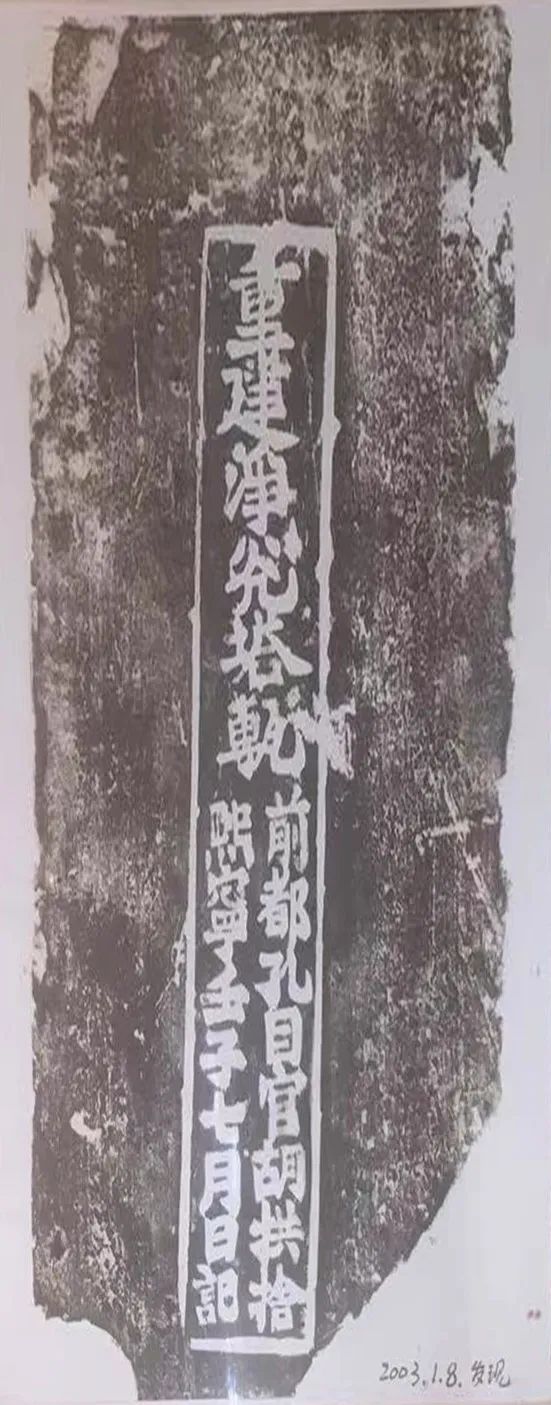 重建淨光塔甎
前都孔目官胡拱捨
熙寧壬子七月日記
2003.1.8.发现